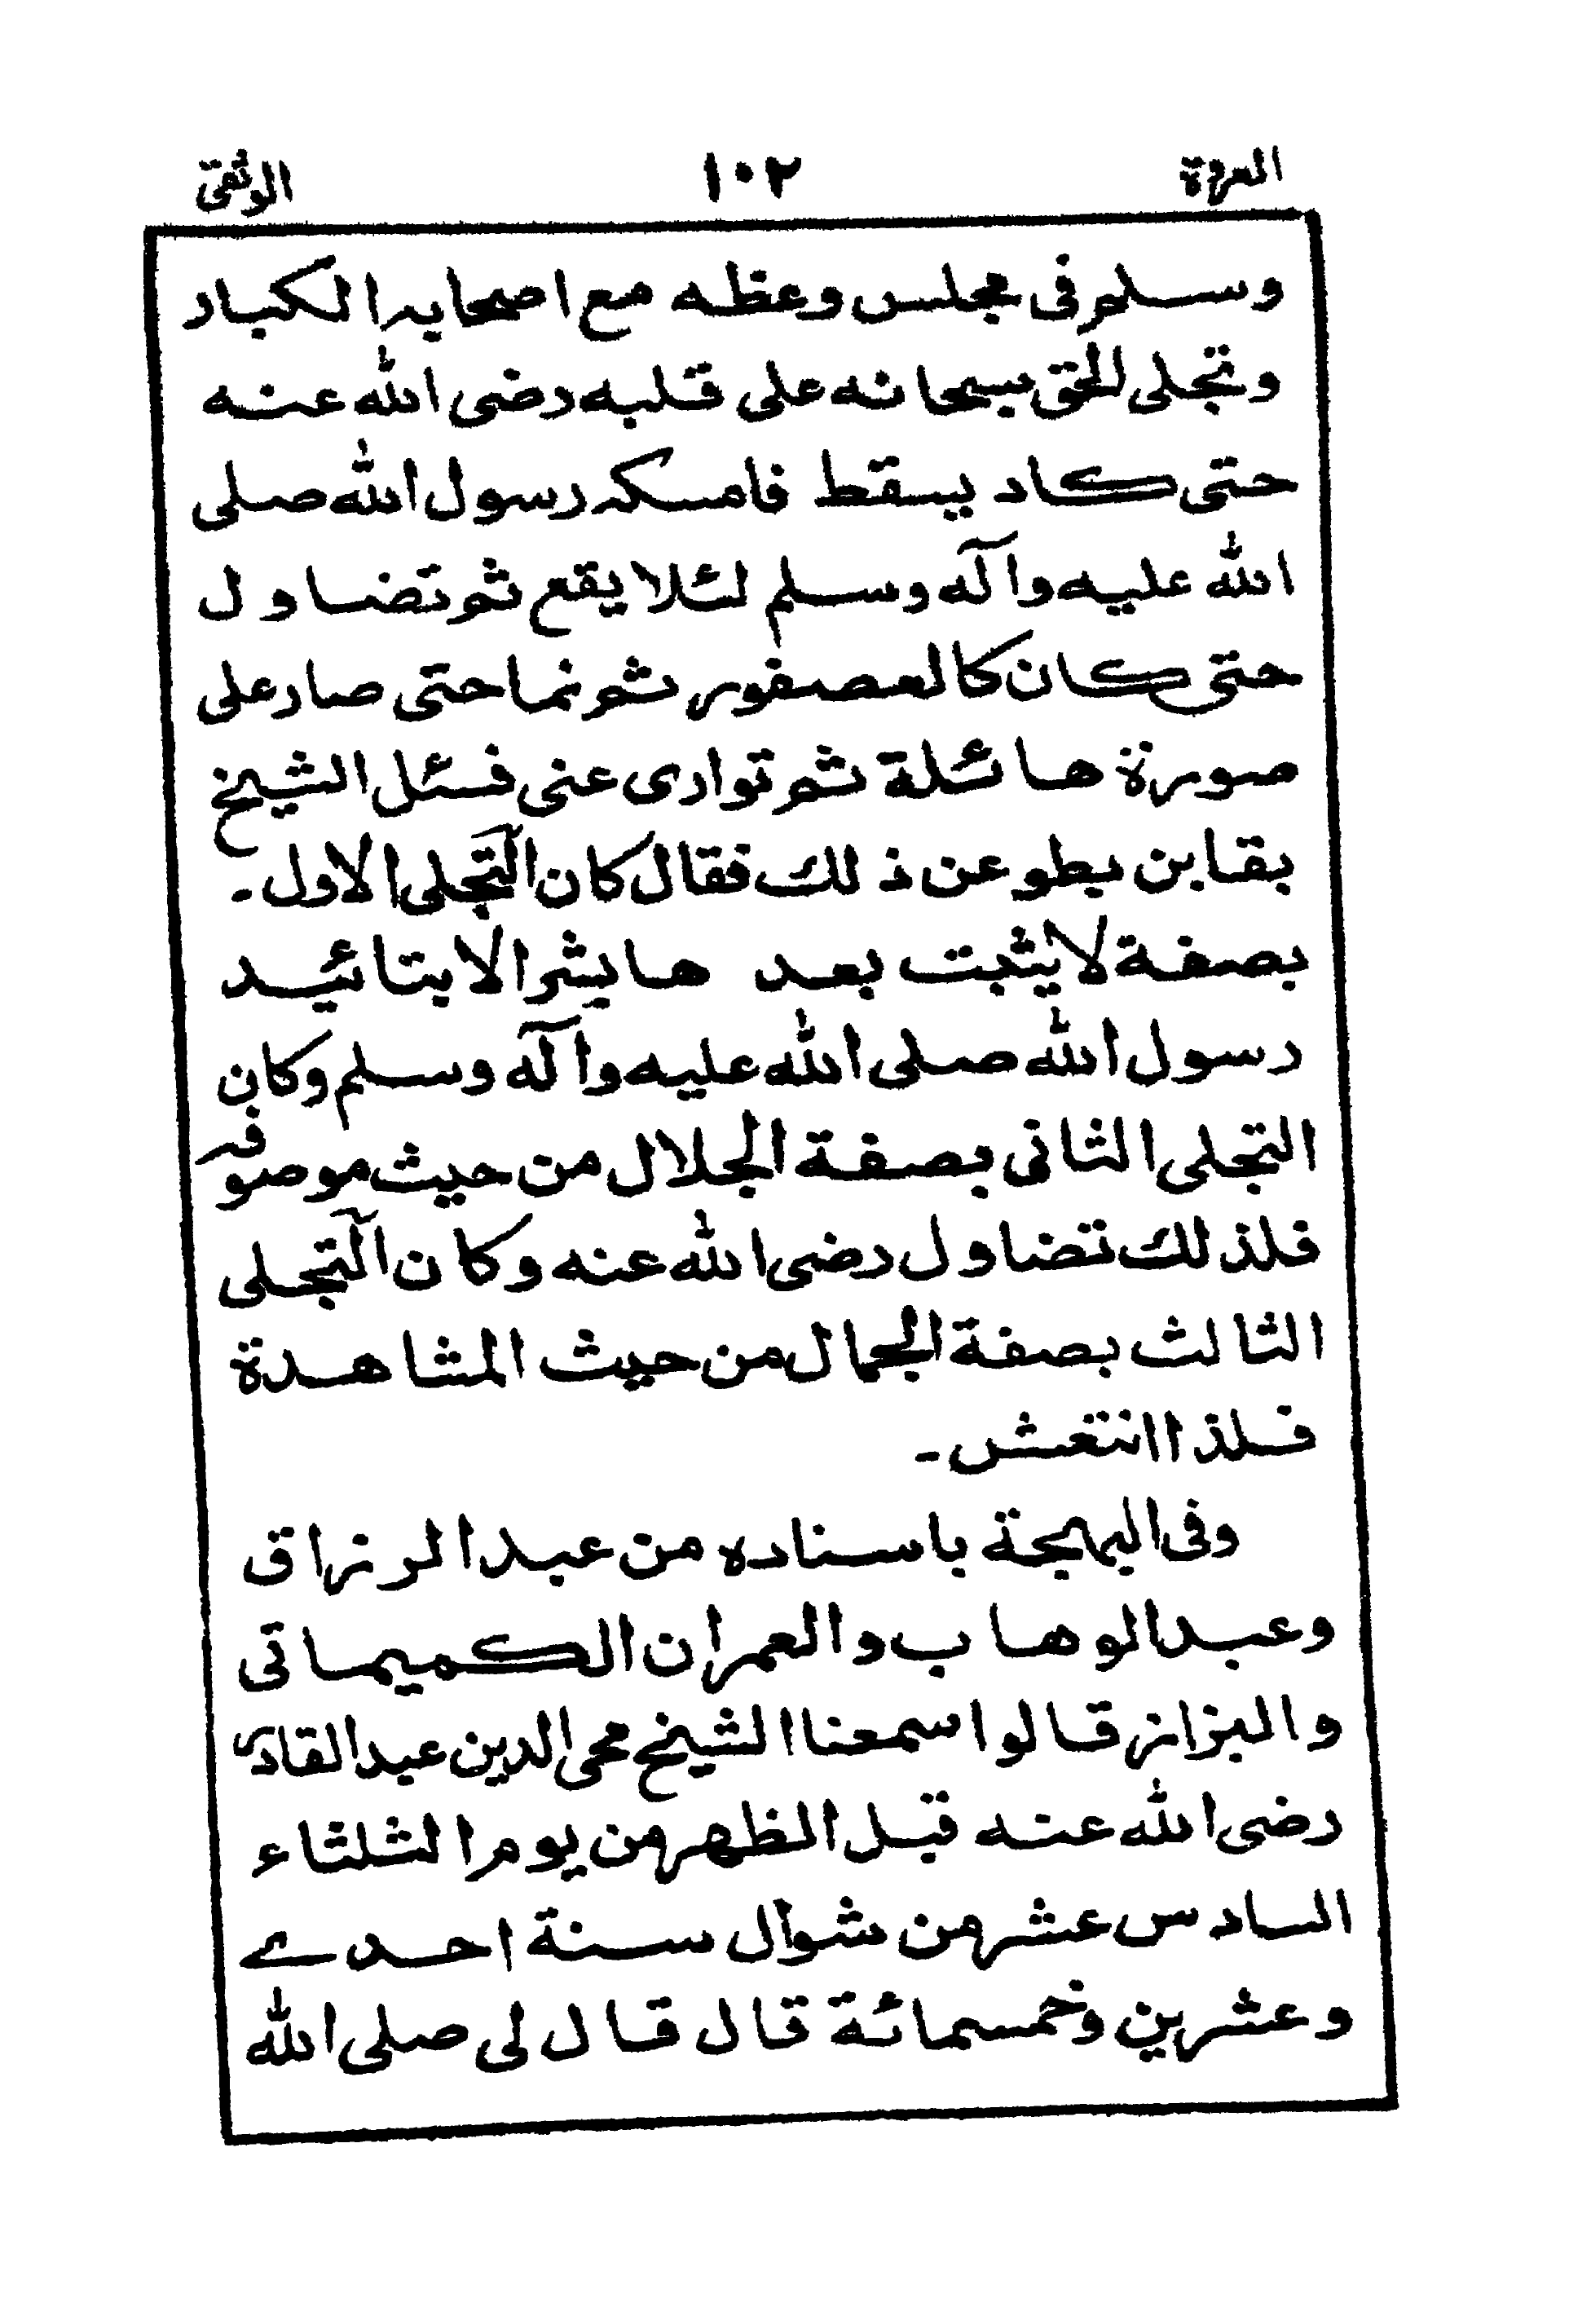 العروة ١٠٢ الوثقى
وسلم فى مجلس وعظه مع اصحابه الكبار
وتجلى الحق سبحانه على قلبه رضى الله عنه
حتى كاد يسقط فامسكه رسول الله صلى
الله عليه وآله وسلم لئلا يقع ثم تضاول
حتى كان كالعصفور ثم نما حتى صار على
صورة هائلة ثم توارى عنى فسئل الشيخ
بقابن بطو عن ذلك فقال كان التجلى الاول۔
بصفة لا يثبت بعد ها بشر الا بتائيد
رسول الله صلى الله عليه وآله وسلم وكان
التجلى الثانى بصفة الجلال من حيث موصوفه
فلذلك تضاول رضى الله عنه وكان التجلى
الثالث بصفة الجمال من حيث المشاهدة
فلذا انتغش۔
وفى البهجة باسناده من عبد الرزاق
وعبد الوهاب والعمران الكميماتى
والبزاز قالوا سمعنا الشيخ محى الدين عبد القادر
رضى الله عنه قبل الظهر من يوم الثلثاء
السادس عشر من شوال سنة احدے
وعشرين وخمسمائة قال قال لى صلى الله